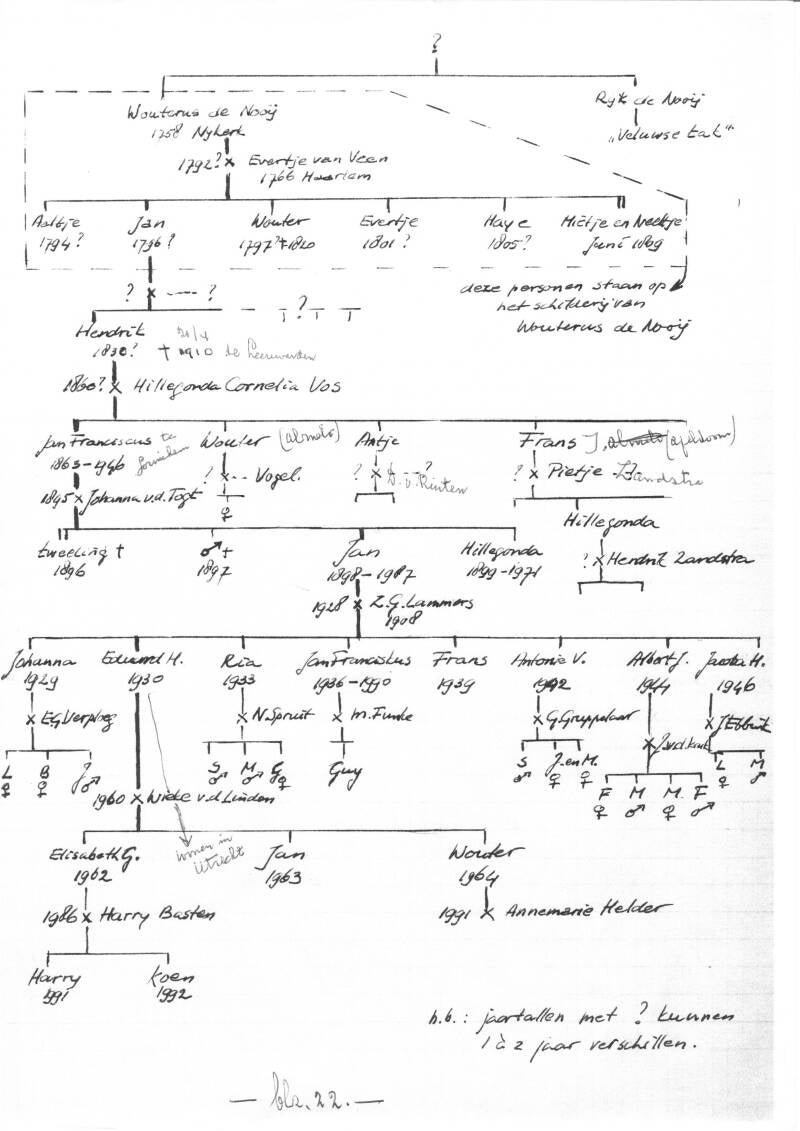 ?
Wouterus de Nooÿ
1758 Nykerk
Ryk de Nooÿ
„Veluwse tak"
1792? x Evertje van Veen
1766 Haarlem
Aaltje Jan Wouter Evertje Haye Mietje en Neeltje
1794? 1796? 1797?+1820 1801? 1805? Juni 1809
? x ---- ?
?
deze personen staan op
het schilderij van
Wouterus de Nooÿ
Hendrik
1830? † 1910 te Leeuwarden
1860? x Hillegonda Cornelia Vos
Jan Franciscus te Wouter (Almelo) Antje Frans J. Almelo (Apeldoorn)
1863-1946 Gorinchem
1895 x Johanna v.d. Togt
? x -- Vogel.
♀
? x ?
D. v. Rinten
? x Pietje Zandstra
Hillegonda
? x Hendrik Zandstra
tweeling † ♂ † Jan Hillegonda
1896 1897 1898-1987 1899-1971
1928 x Z.G. Lammers
1908
Johanna Eduard H. Ria Jan Franciskus Frans Antonie V. Albert J. Jacoba H.
1929 1930 1933 1936-1990 1939 1942 1944 1946
x E.G. Verploeg x N. Spruit x M. Funke x G. Gruppelaar x J. v.d. Kurk x J. Ebbink
L B J S M G Guy S J. en M. F M M F L M
♀ ♀ ♂ ♂ ♂ ♀ ♂ ♀ ♀ ♀ ♂ ♀ ♂ ♀ ♂
1960 x Wieke v.d. Linden
wonen in
Utrecht
Elisabeth G. Jan Wouter
1962 1963 1964
1986 x Harry Basten 1991 x Annemarie Helder
Harry Koen
1991 1992
n.b.: jaartallen met ? kunnen
1 à 2 jaar verschillen.
— blz. 22. —